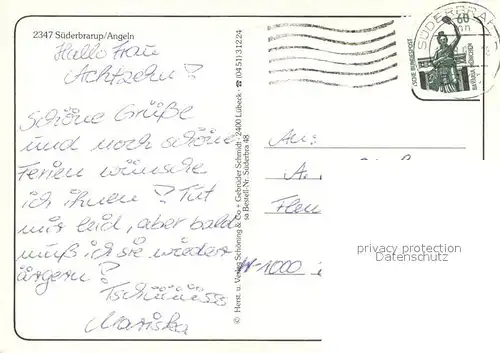 2347 Süderbrarup/Angeln
Hallo Frau
Achtzehn!
Schöne Grüße
und noch schöne
Ferien wünsche
ich ihnen! Tut
mir leid, aber bald
muß ich sie wieder
ärgern!
Tschüüüsss
Mariska
© Herst. u. Verlag Schöning & Co + Gebrüder Schmidt · 2400 Lübeck · ☎ (0451) 31224
sa Bestell-Nr. Süderbra 48
SÜDERBRARUP
60
DEUTSCHE BUNDESPOST
BAVARIA MÜNCHEN
An:
A
Flen
W-1000
privacy protection
Datenschutz